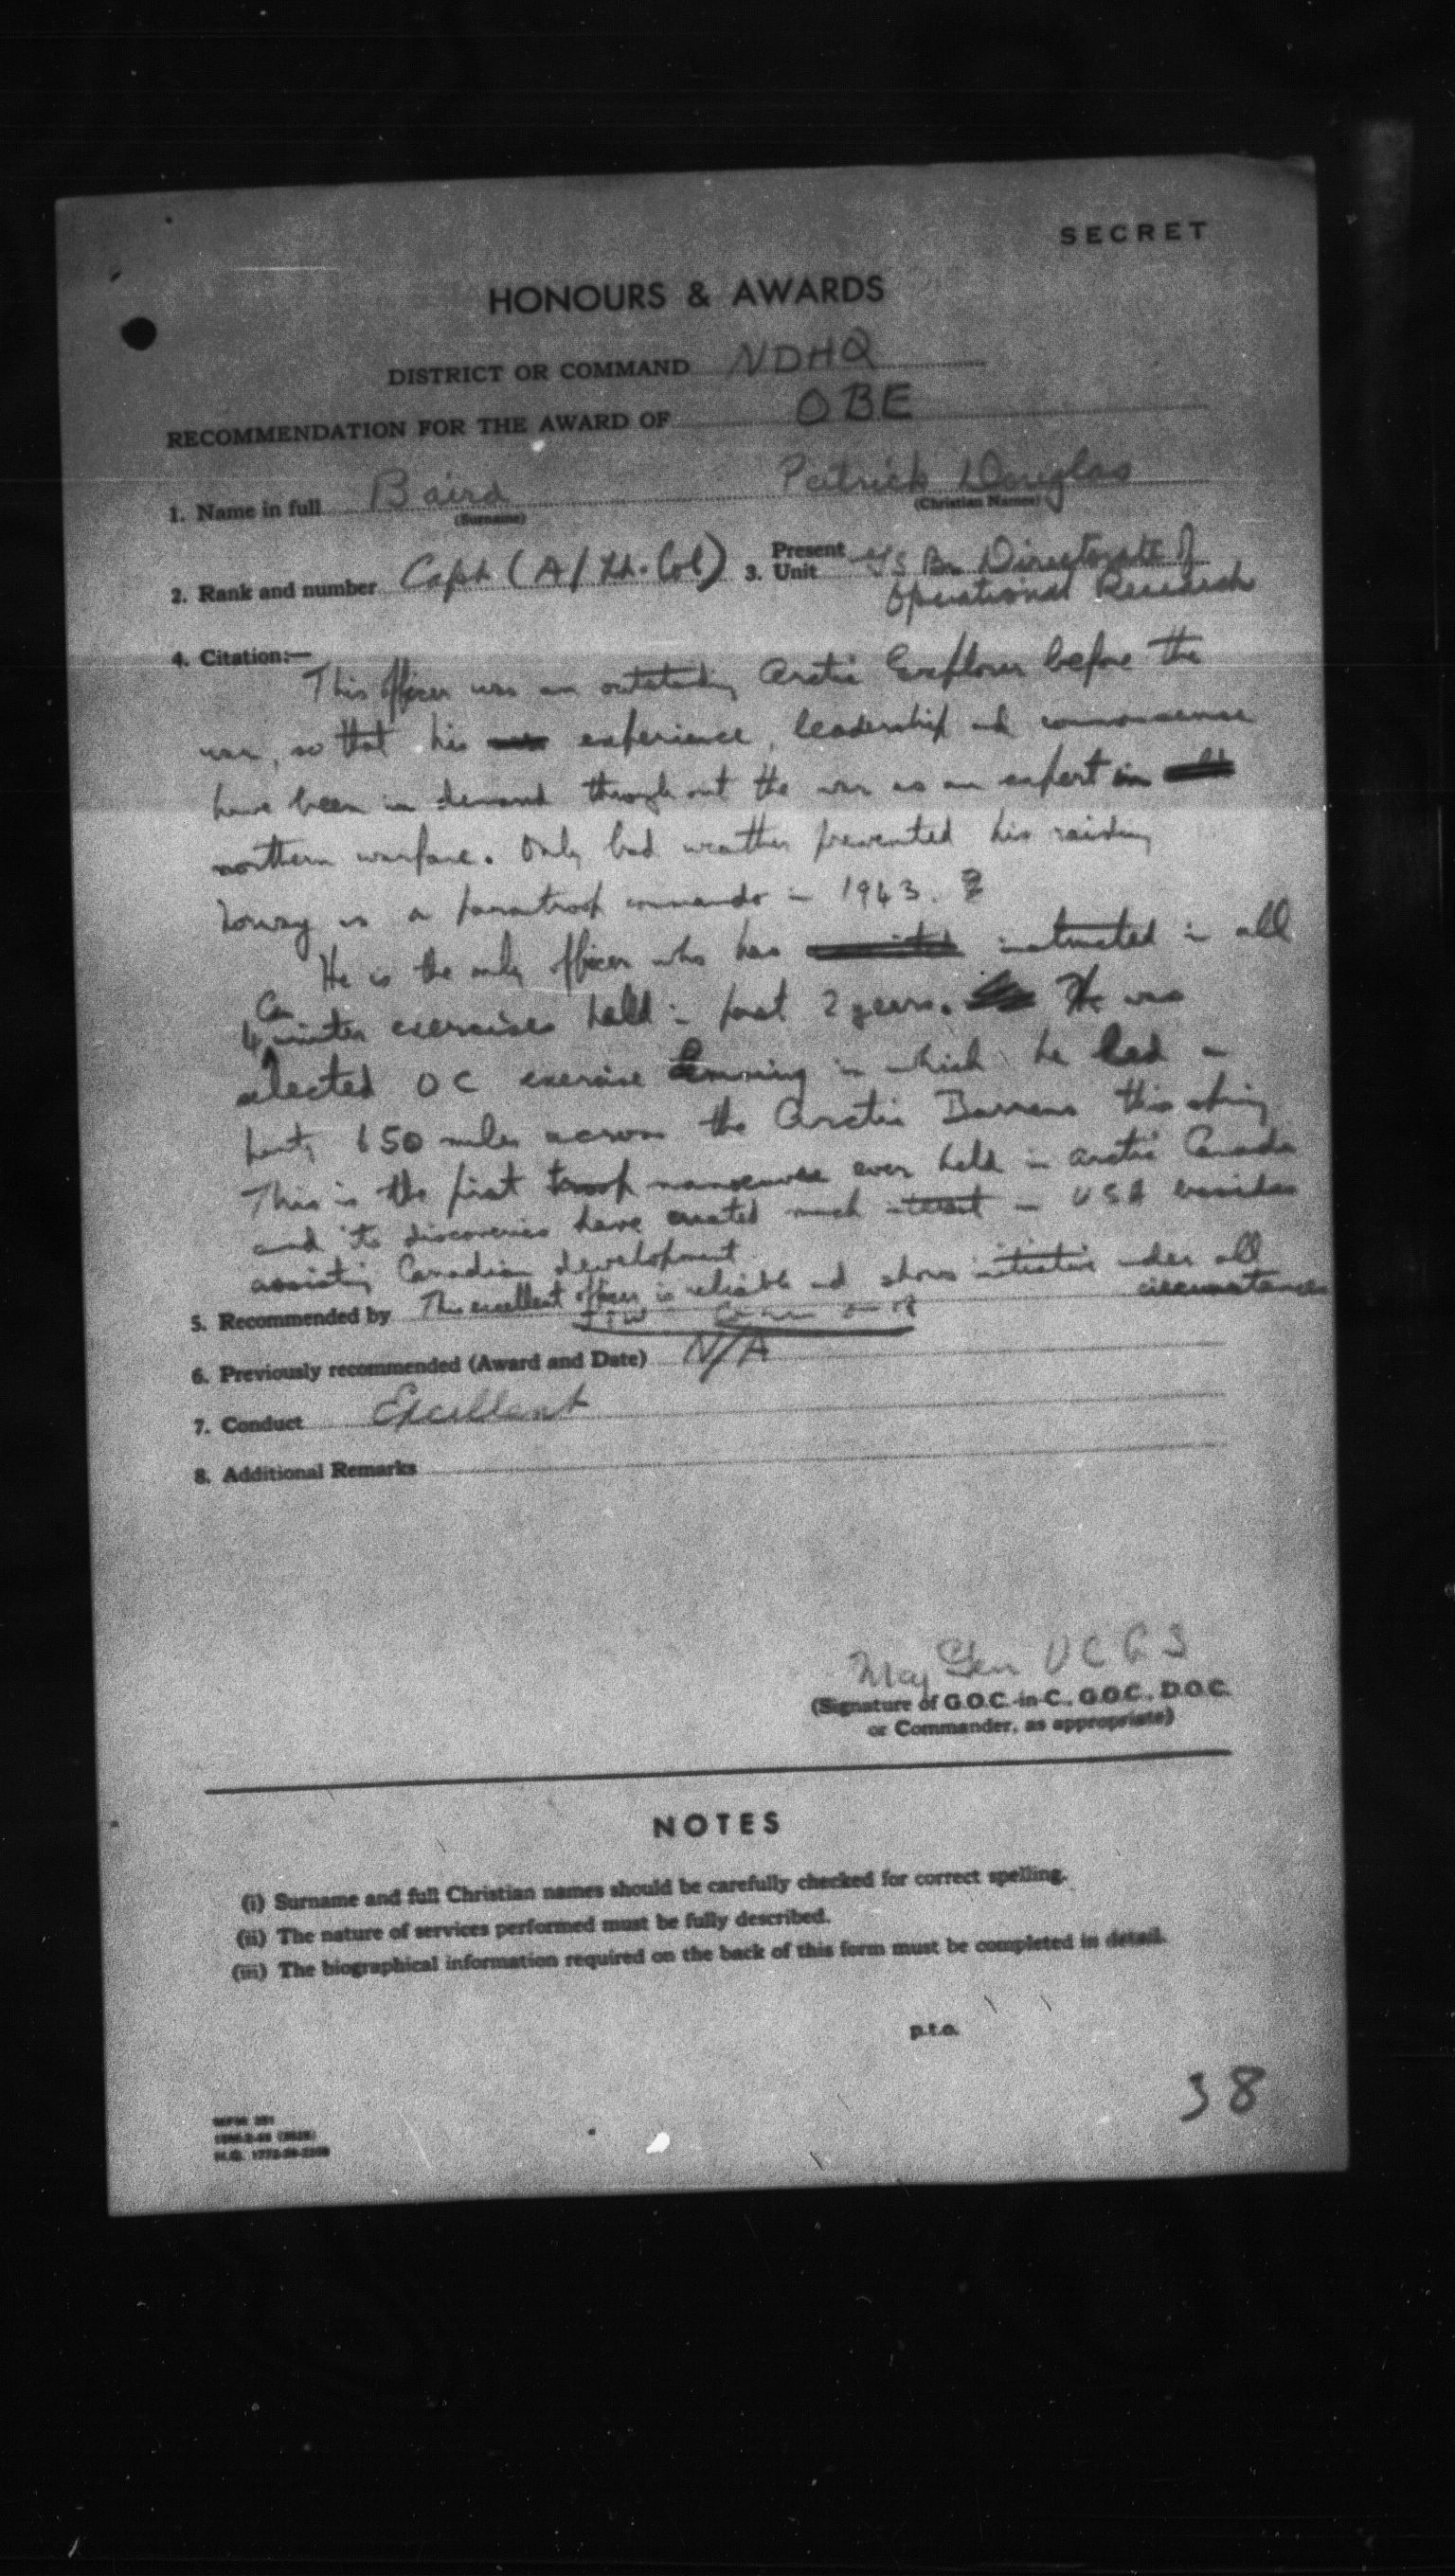 SECRET
HONOURS & AWARDS
DISTRICT OR COMMAND NDHQ
RECOMMENDATION FOR THE AWARD OF OBE
1. Name in full Baird Patrick Douglas
(Surname) (Christian Names)
2. Rank and number Capt (A/Lt. Col) 3. Present Unit GS Br. Directorate of
Operational Research
4. Citation:—
This officer was an outstanding Arctic Explorer before the
war, so that his experience, leadership and commonsense
have been in demand throughout the war as an expert in
northern warfare. Only bad weather prevented his raiding
Norway as a paratroop commando in 1943.
He is the only officer who has instructed in all
4 Can winter exercises held in past 2 years. He was
selected OC exercise Lemming in which he led a
party 650 miles across the Arctic Barrens this spring
This is the first troop manoeuvre ever held in arctic Canada
and its discoveries have created much interest in USA besides
assisting Canadian development.
This excellent officer is reliable and shows initiative under all
circumstances
5. Recommended by
6. Previously recommended (Award and Date) N/A
7. Conduct Excellent
8. Additional Remarks
Maj Gen VCGS
(Signature of G.O.C.-in-C., G.O.C., D.O.C.
or Commander, as appropriate)
NOTES
(i) Surname and full Christian names should be carefully checked for correct spelling.
(ii) The nature of services performed must be fully described.
(iii) The biographical information required on the back of this form must be completed in detail.
p.t.o.
38